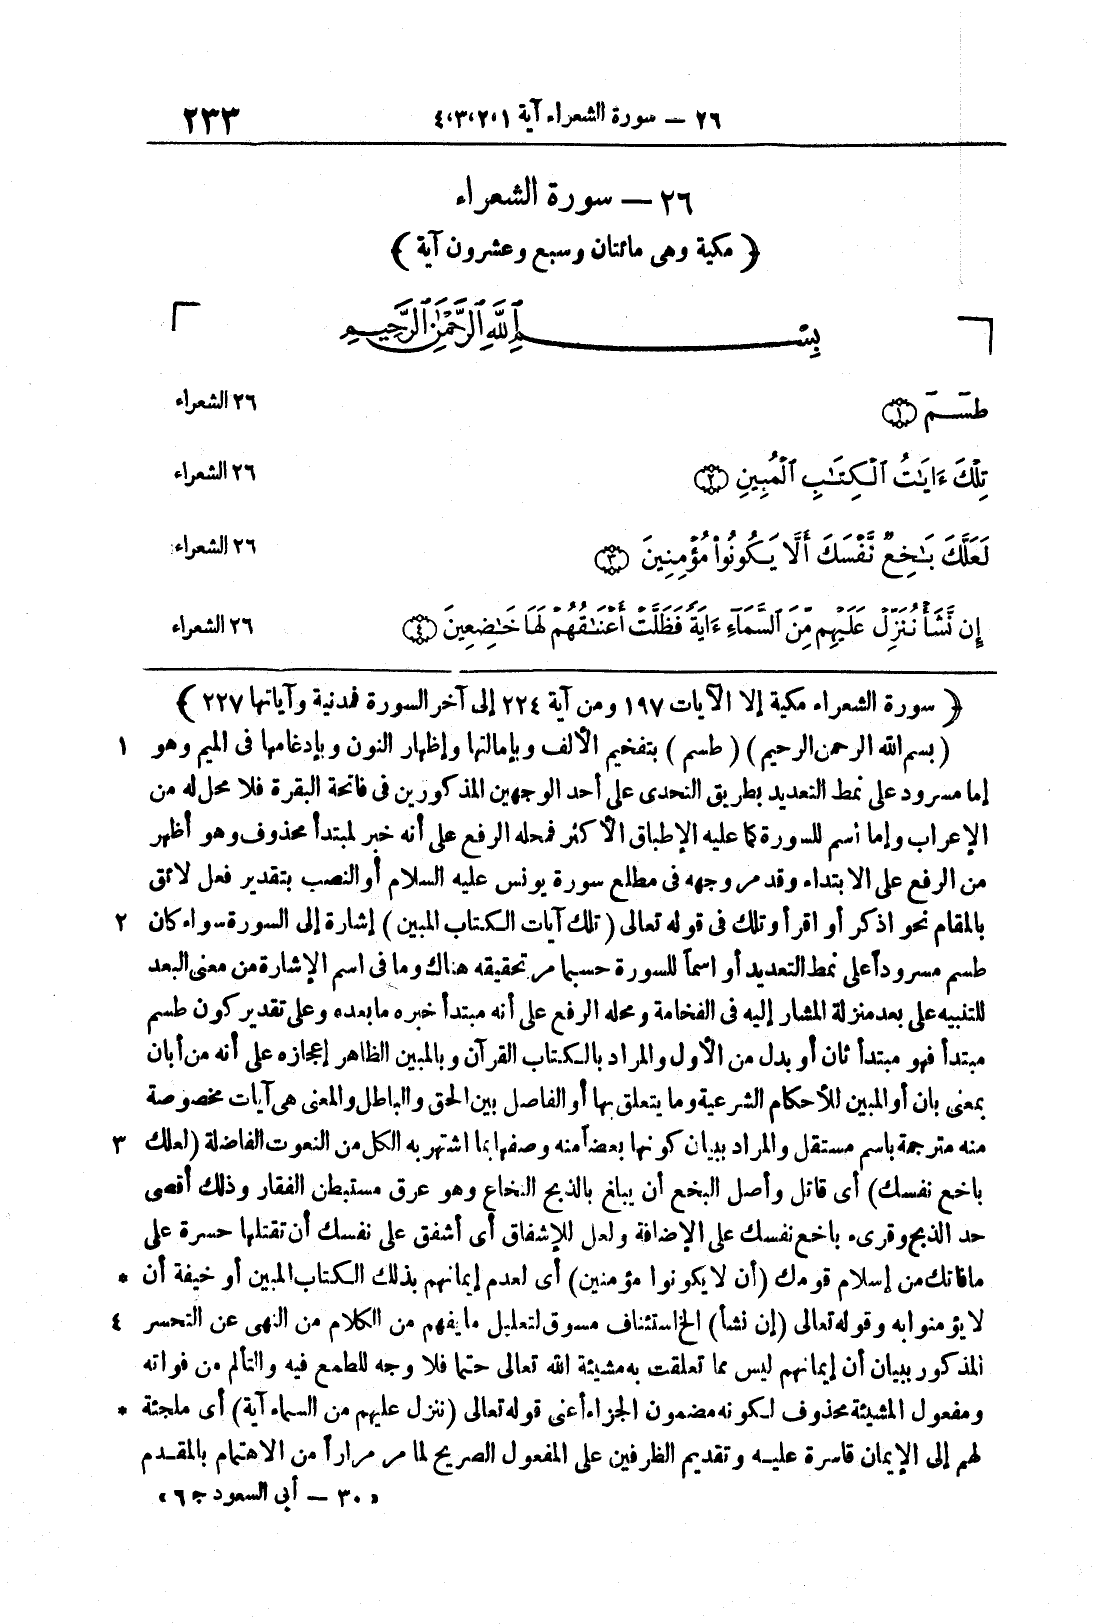 ٢٦ — سورة الشعراء آية ١،٢،٣،٤ ٢٣٣
٢٦ — سورة الشعراء
﴿ مكية وهى مائتان وسبع وعشرون آية ﴾
بِسْمِ ٱللَّهِ ٱلرَّحْمَٰنِ ٱلرَّحِيمِ
طسٓمٓ ١ ٢٦ الشعراء
تِلْكَ ءَايَٰتُ ٱلْكِتَٰبِ ٱلْمُبِينِ ٢ ٢٦ الشعراء
لَعَلَّكَ بَٰخِعٌ نَّفْسَكَ أَلَّا يَكُونُوا۟ مُؤْمِنِينَ ٣ ٢٦ الشعراء
إِن نَّشَأْ نُنَزِّلْ عَلَيْهِم مِّنَ ٱلسَّمَآءِ ءَايَةً فَظَلَّتْ أَعْنَٰقُهُمْ لَهَا خَٰضِعِينَ ٤ ٢٦ الشعراء
﴿ سورة الشعراء مكية إلا الآيات ١٩٧ ومن آية ٢٢٤ إلى آخر السورة فمدنية وآياتها ٢٢٧ ﴾
( بسم الله الرحمن الرحيم ) ( طسم ) بتفخيم الألف وبإمالتها وإظهار النون وبإدغامها فى الميم وهو ١
إما مسرود على نمط التعديد بطريق التحدى على أحد الوجهين المذكورين فى فاتحة البقرة فلا محل له من
الإعراب وإما اسم للسورة كما عليه الإطباق الأكثر فمحله الرفع على أنه خبر لمبتدأ محذوف وهو أظهر
من الرفع على الابتداء وقد مر وجهه فى مطلع سورة يونس عليه السلام أو النصب بتقدير فعل لائق
بالمقام نحو اذكر أو اقرأ وتلك فى قوله تعالى ( تلك آيات الكتاب المبين ) إشارة إلى السورة سواء كان ٢
طسم مسروداً على نمط التعديد أو اسماً للسورة حسبما مر تحقيقه هناك وما فى اسم الإشارة من معنى البعد
للتنبيه على بعد منزلة المشار إليه فى الفخامة ومحله الرفع على أنه مبتدأ خبره ما بعده وعلى تقدير كون طسم
مبتدأ فهو مبتدأ ثان أو بدل من الأول والمراد بالكتاب القرآن وبالمبين الظاهر إعجازه على أنه من أبان
بمعنى بان أو المبين للأحكام الشرعية وما يتعلق بها أو الفاصل بين الحق والباطل والمعنى هى آيات مخصوصة
منه مترجمة باسم مستقل والمراد ببيان كونها بعضاً منه وصفها بما اشتهر به الكل من النعوت الفاضلة (لعلك ٣
باخع نفسك) أى قاتل وأصل البخع أن يبلغ بالذبح النخاع وهو عرق مستبطن الفقار وذلك أقصى
حد الذبح وقرىء باخع نفسك على الإضافة ولعل للإشفاق أى أشفق على نفسك أن تقتلها حسرة على
ما فاتك من إسلام قومك (أن لا يكونوا مؤمنين) أى لعدم إيمانهم بذلك الكتاب المبين أو خيفة أن *
لا يؤمنوا به وقوله تعالى (إن نشأ) الخ استئناف مسوق لتعليل ما يفهم من الكلام من النهى عن التحسر ٤
المذكور ببيان أن إيمانهم ليس مما تعلقت به مشيئة الله تعالى حتما فلا وجه للطمع فيه والتألم من فواته
ومفعول المشيئة محذوف لكونه مضمون الجزاء أعنى قوله تعالى (ننزل عليهم من السماء آية) أى ملجئة *
لهم إلى الإيمان قاسرة عليه وتقديم الظرفين على المفعول الصريح لما مر مراراً من الاهتمام بالمقدم
« ٣٠ — أبى السعود ج ٦ »